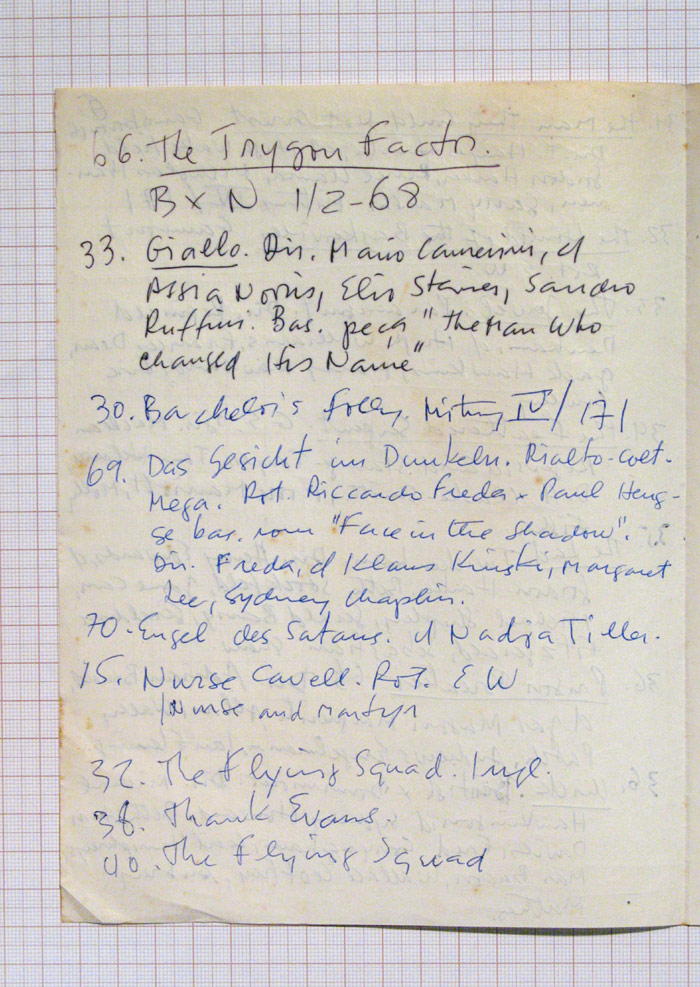 66. The Trygon Factor.
B x N 1/2-68
33. Giallo. Dir. Mario Camerini, d
Assia Norris, Elio Steiner, Sandro
Ruffini. Bas. peça "The Man Who
changed His Name"
30. Bachelor's folly, Mistery IV / 171
69. Das Gesicht im Dunkeln. Rialto-coet-
Mega. Rot. Riccardo Freda x Paul Heng-
se bas. rom "Face in the shadow".
Dir. Freda, d Klaus Kinski, Margaret
Lee, Sydney Chaplin.
70. Engel des Satans. d Nadja Tiller.
15. Nurse Cavell. Rot. E W
/Nurse and Martyr
32. The Flying Squad. Ingl.
38. Thank Evans.
40. The Flying Squad